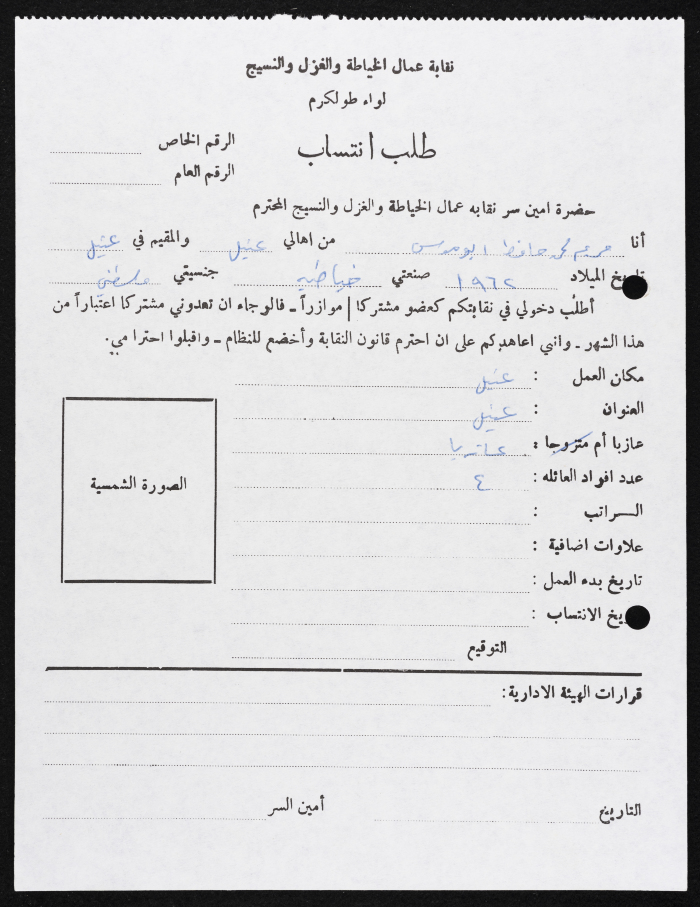 نقابة عمال الخياطة والغزل والنسيج
لواء طولكرم
طلب انتساب
الرقم الخاص
الرقم العام
حضرة امين سر نقابه عمال الخياطة والغزل والنسيج المحترم
أنا مريم محمد حافظ ابو من اهالي عتيل والمقيم في عتيل
تاريخ الميلاد ١٩٦٢ صنعتي خياطه جنسيتي فلسطيني
أطلب دخولي في نقابتكم كعضو مشتركا | موازراً ــ فالرجاء ان تعدوني مشتركا اعتباراً من
هذا الشهر ــ وانني اعاهدكم على ان احترم قانون النقابة وأخضع للنظام ــ واقبلوا احترامي.
مكان العمل : عتيل
العنوان : عتيل
عازبا أم متزوجا : عازبا
عدد افراد العائله : ٤
الـــراتب :
علاوات اضافية :
تاريخ بدء العمل :
يخ الانتساب :
التوقيع
الصورة الشمسية
قرارات الهيئة الادارية :
التاريخ أمين السر